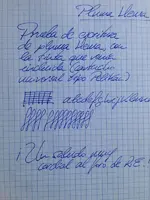 Pluma Hema
Prueba de escritura
de pluma Hema con
la tinta que viene
incluida (cartucho
universal tipo Pelikan)
abcdefghijk
¡Un saludo muy
cordial al foro de